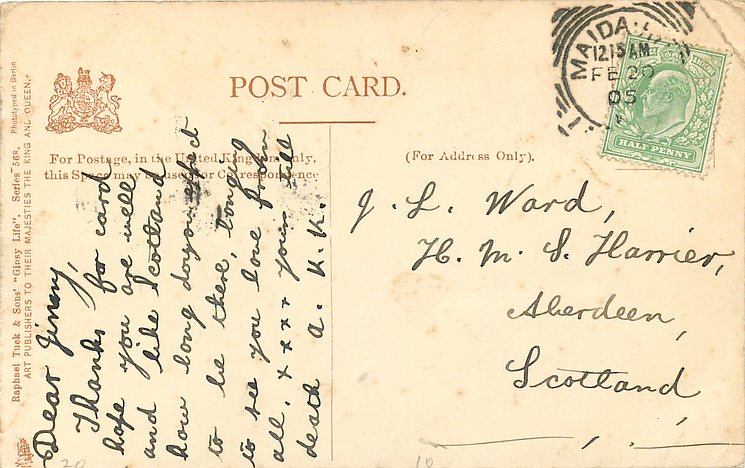 POST CARD.
For Postage, in the United Kingdom only,
this Space may be used for Correspondence
(For Address Only).
MAIDA
12.15AM
FE 20
05
HALF PENNY
Raphael Tuck & Sons' "Gipsy Life". Series 568. Phototyped in Berlin.
ART PUBLISHERS TO THEIR MAJESTIES THE KING AND QUEEN.
Dear Jinny,
Thanks for card
hope you are well
and like Scotland
how long do you expect
to be there, long?
to see you love from
all. xxxx yours till
death A. K. K.
J. L. Ward,
H. M. S. Harrier,
Aberdeen,
Scotland
20
10